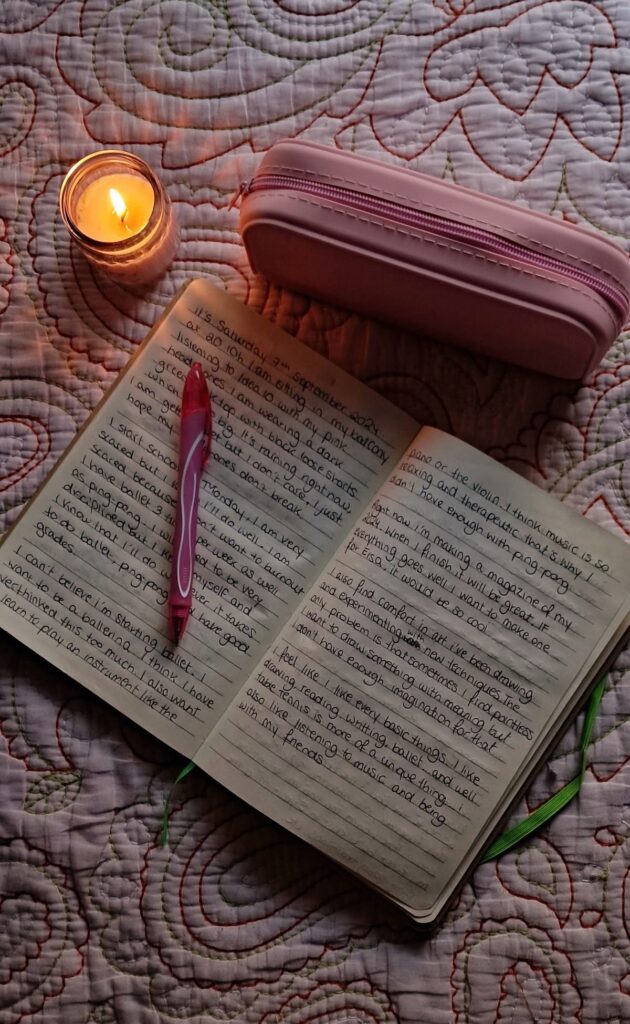 It's Saturday 7th September 2024
at 20 10h. I am sitting in my balcony
listening to lace is with my pink
headphones. I am wearing a dark
green top with black loose shorts
which big. It's raining right now
I am get but I don't care. I just
hope my ones don't break.
I start school Monday. I am very
scared but I 'll do well. I am
scared because I don't want to burnout
I have ballet 3 per week as well
as ping pong. I to be very
disciplined but I k myself and
I know that I'll do ove it takes
to do ballet, ping pong have good
grades.
I can't believe i'm starting ballet. I
want to be a ballerina. I think I have
overthinked this too much. I also want
learn to play an instrument like the
piano or the violin. I think music is so
relaxing and therapeutic that's why I
don't have enough with ping pong
right now i'm making a magazine of my
cat. When I finish I will be great. If
everything goes well I want to make one
for Ersa. It would be so cool
I also find comfort in art. i've been drawing
and experimenting new techniques. the
only problem is that sometimes i find pointless
I want to draw something with meaning but
I don't have enough imagination for that
I feel like I like every basic things. I like
drawing, reading, writing, ballet and well
table tennis is more of a unique thing. I
also like listening to music and being
with my friends